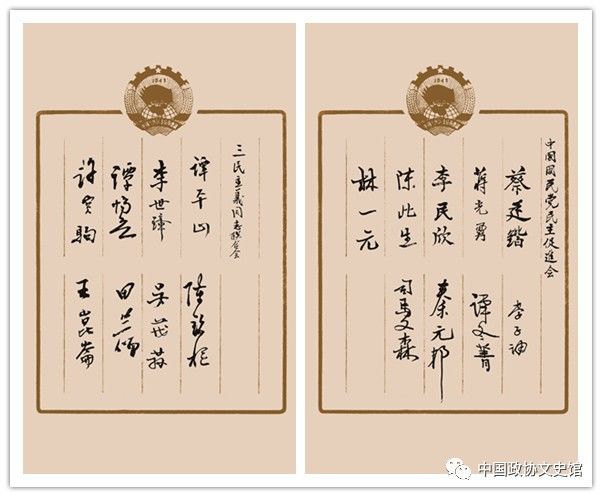 三民主義同志联合会
譚平山
陳銘枢
李世璋
吴茂蓀
譚惕吾
田竺僧
許宝駒
王崑崙
中国國民党民主促進会
蔡廷鍇
李子诵
蒋光鼐
谭冬菁
李民欣
秦元邦
陈此生
司马文森
林一元
1949
1949
中国政协文史馆